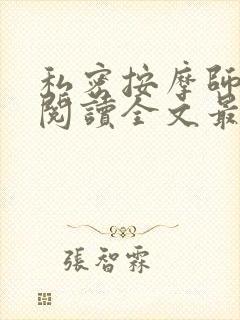 私密按摩師
閱讀全文最
張智霖